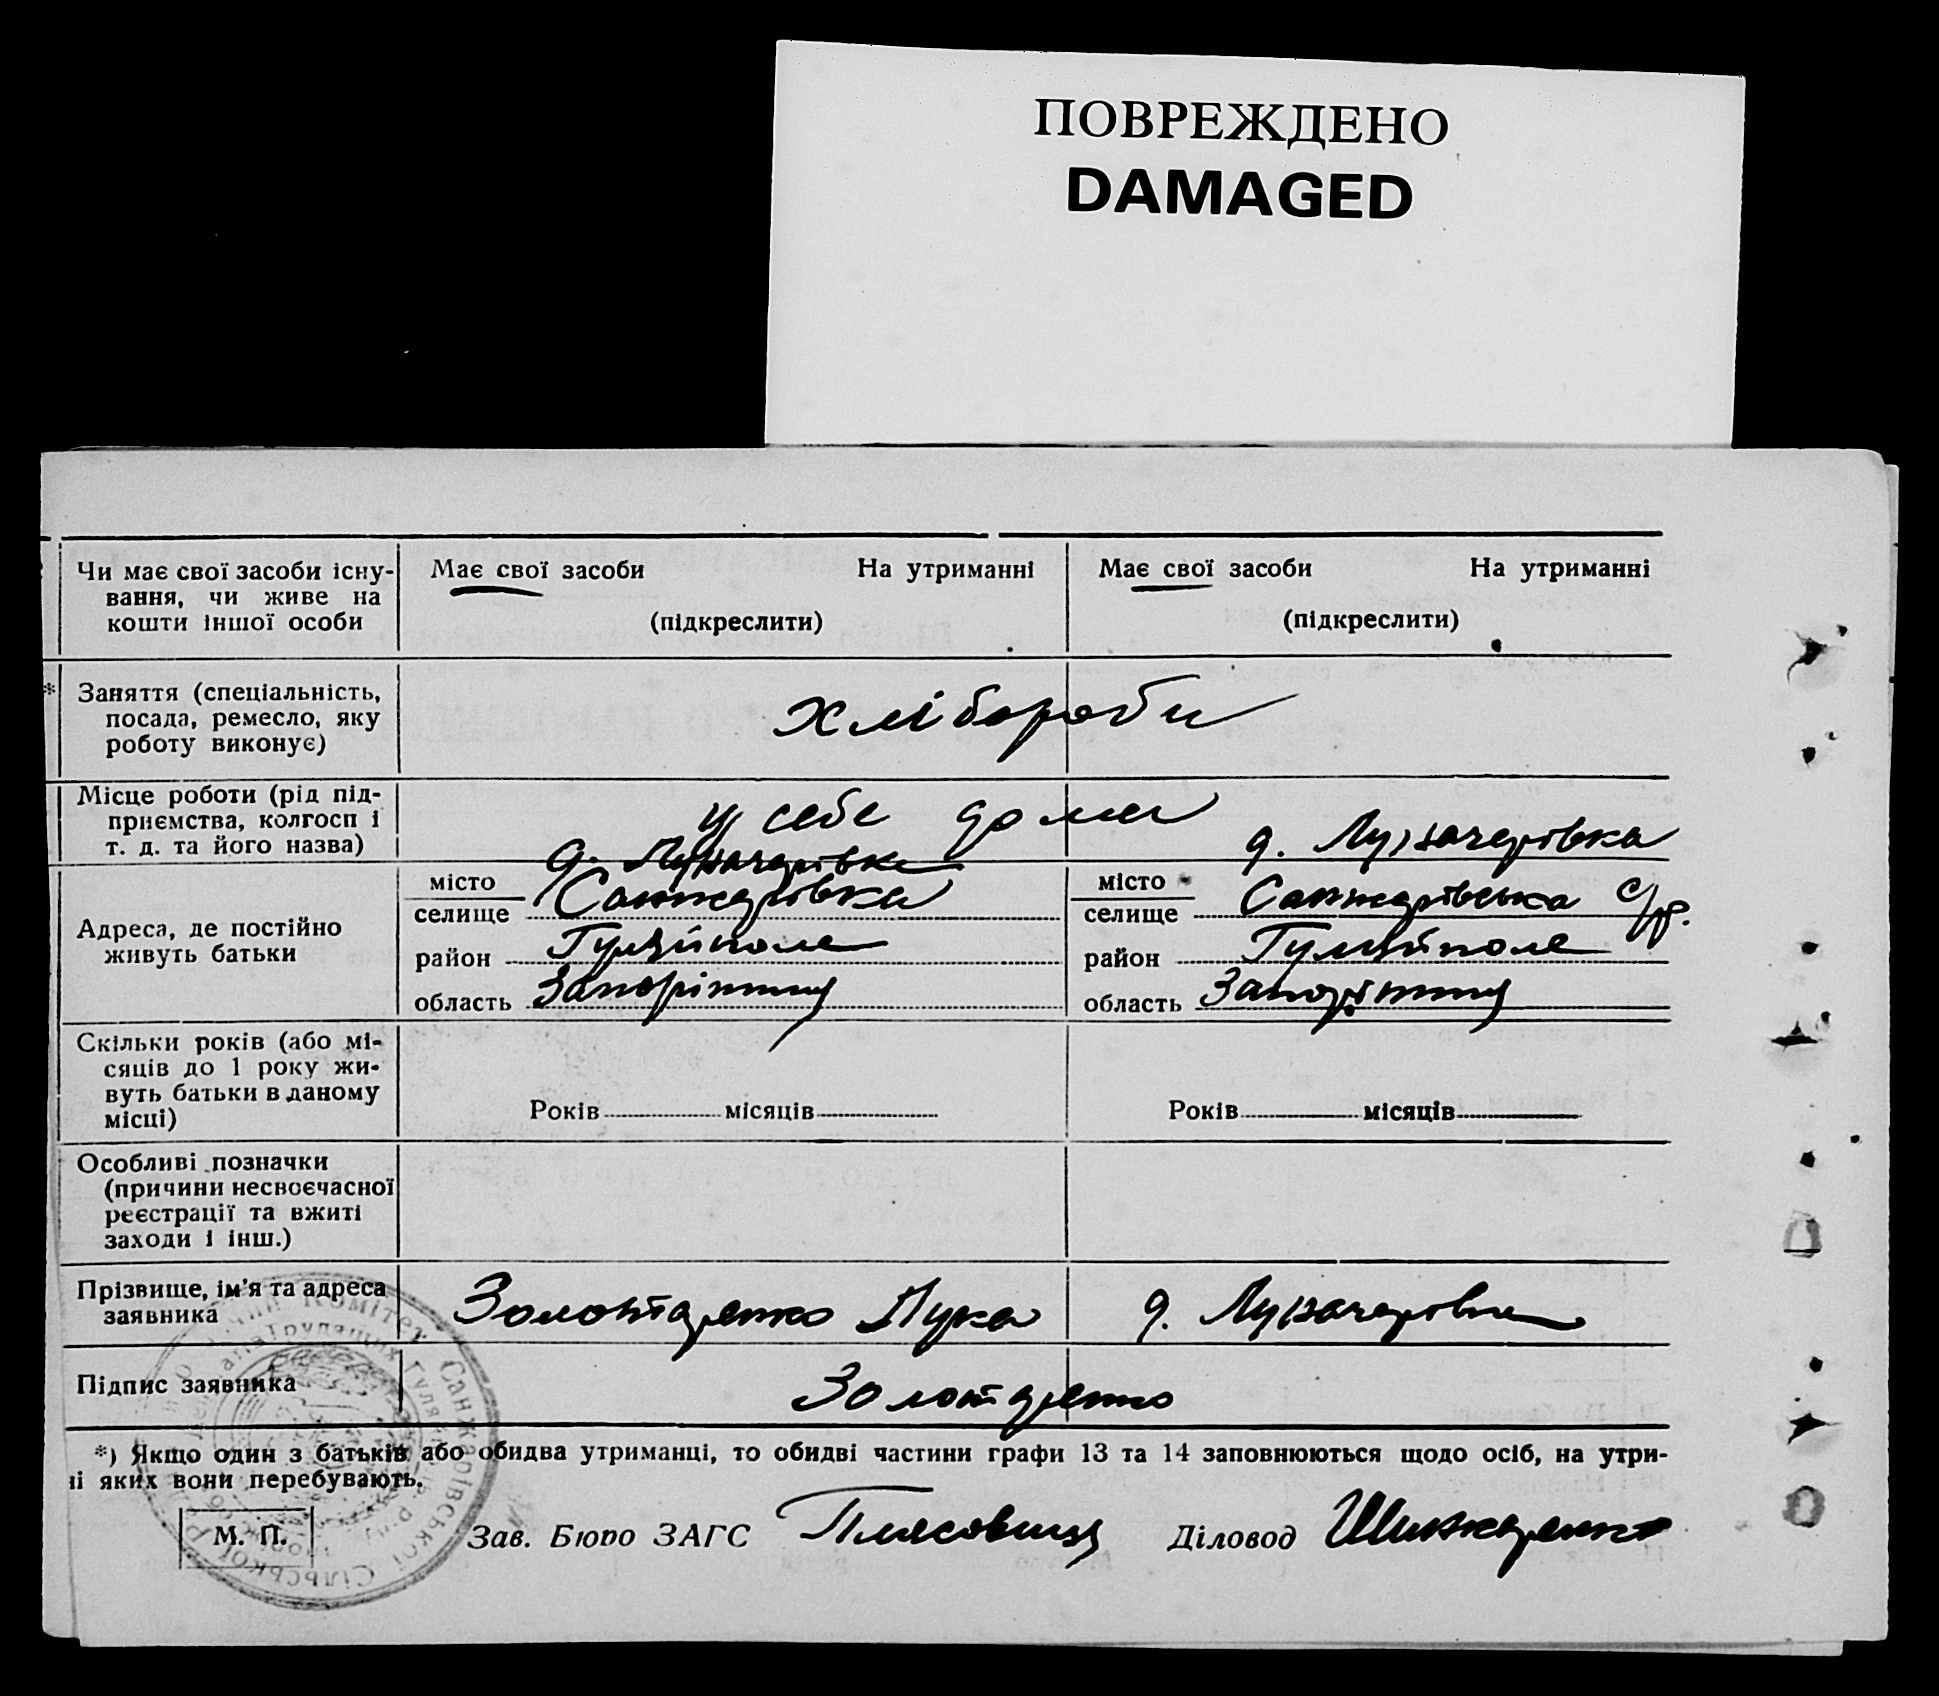 ПОВРЕЖДЕНО
DAMAGED
Чи має свої засоби існу-
вання, чи живе на
кошти іншої особи
Має свої засоби На утриманні
(підкреслити)
Має свої засоби На утриманні
(підкреслити)
* Заняття (спеціальність,
посада, ремесло, яку
роботу виконує)
хлібороби
Місце роботи (рід під-
приємства, колгосп і
т. д. та його назва)
у себе дома
Адреса, де постійно
живуть батьки
д. Луначарівка
місто
селище Санжарівка
район Гуляйполе
область Запоріжжя
д. Луначарівка
місто
селище Санжарівська с/р.
район Гуляйполе
область Запоріжжя
Скільки років (або мі-
сяців до 1 року жи-
вуть батьки в даному
місці)
Років місяців
Років місяців
Особливі позначки
(причини несвоєчасної
реєстрації та вжиті
заходи і інш.)
Прізвище, ім'я та адреса
заявника
Золотаренко Лука д. Луначарівка
Підпис заявника
Золотаренко
*) Якщо один з батьків або обидва утриманці, то обидві частини графи 13 та 14 заповнюються щодо осіб, на утри-
ні яких вони перебувають.
М. П.
Зав. Бюро ЗАГС Діловод Шинкаренко
Комітет Санжарівської Сільської